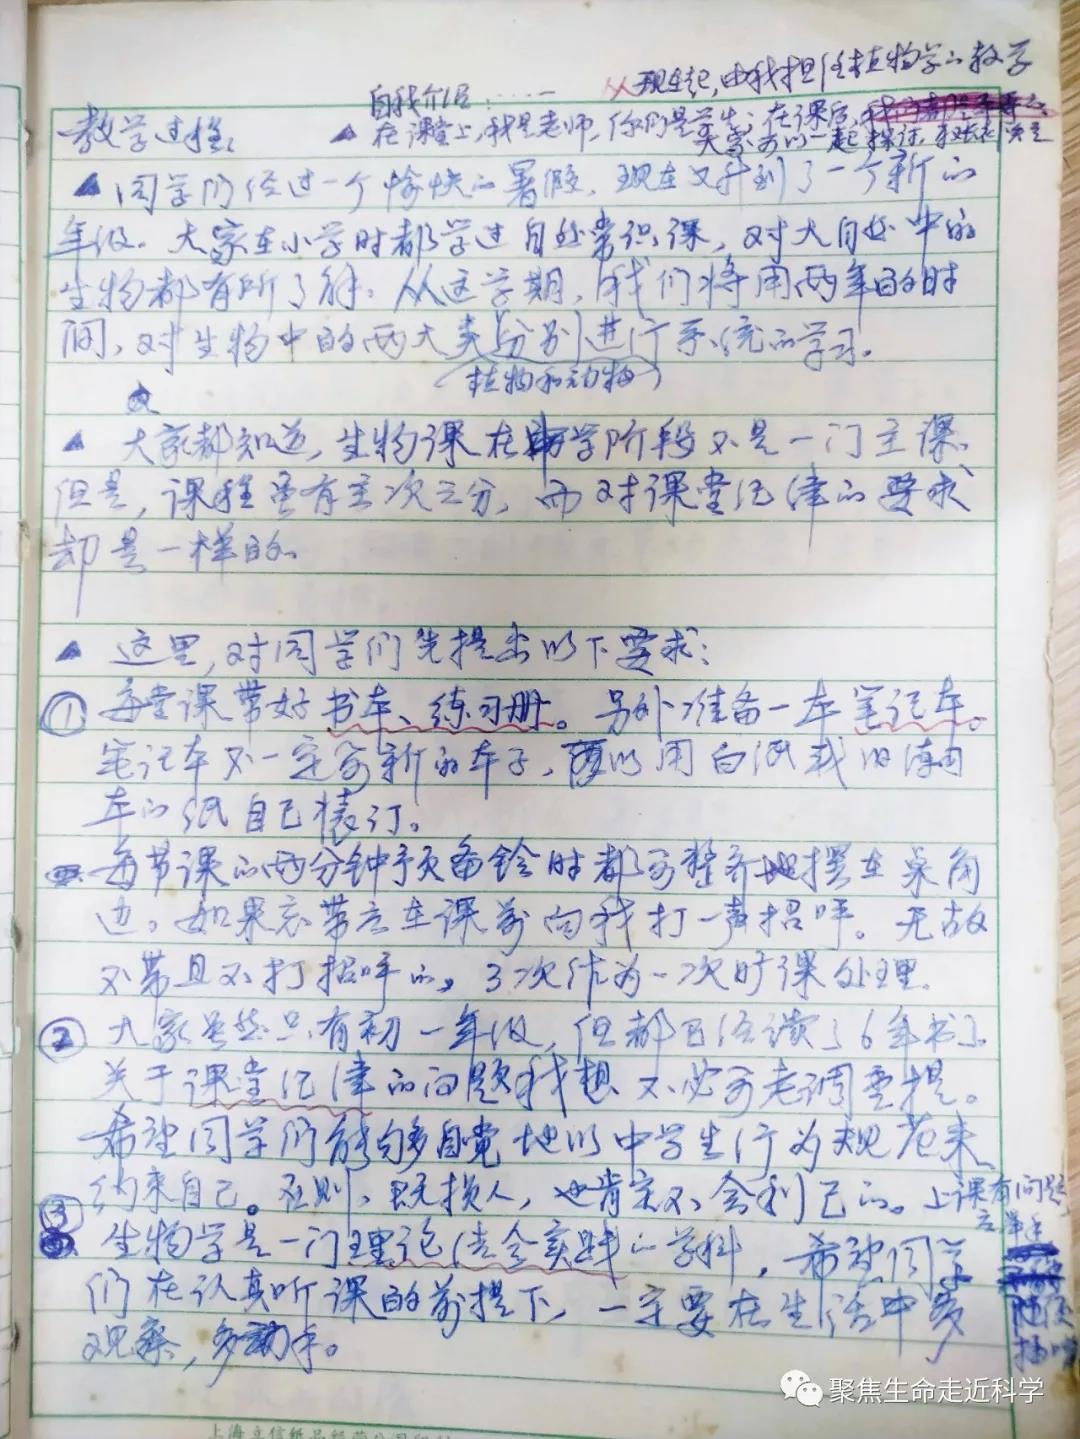 自我介绍：……
从现在起，由我担任植物学的教学
教学过程：
▲在课堂上，我是老师，你们是学生；在课后，我
大家可以一起探讨，
▲同学们经过一个愉快的暑假，现在又升到了一个新的
年级。大家在小学时都学过自然常识课，对大自然中的
生物都有所了解。从这学期，我们将用两年的时
间，对生物中的两大类分别进行系统的学习。
（植物和动物）
▲大家都知道，生物课在中学阶段不是一门主课。
但是，课程虽有主次之分，而对课堂纪律的要求
却是一样的。
▲这里，对同学们先提出以下要求：
①每堂课带好书本、练习册。另外准备一本笔记本。
笔记本不一定要新的本子，可以用白纸或旧簿
本的纸自己装订。
每节课的两分钟预备铃时都要整齐地摆在桌角
边。如果忘带应在课前向我打一声招呼。无故
不带且不打招呼的，3次作为一次旷课处理。
②大家虽然只有初一年级，但都已经读了6年书了
关于课堂纪律的问题我想不必要老调重提。
希望同学们能够自觉地以中学生行为规范来
约束自己。否则，既损人，也肯定不会利己的。上课有问题
应举手
③生物学是一门理论结合实践的学科，希望同学
们在认真听课的前提下，一定要在生活中多
随便
插嘴
观察，多动手。
聚焦生命走近科学